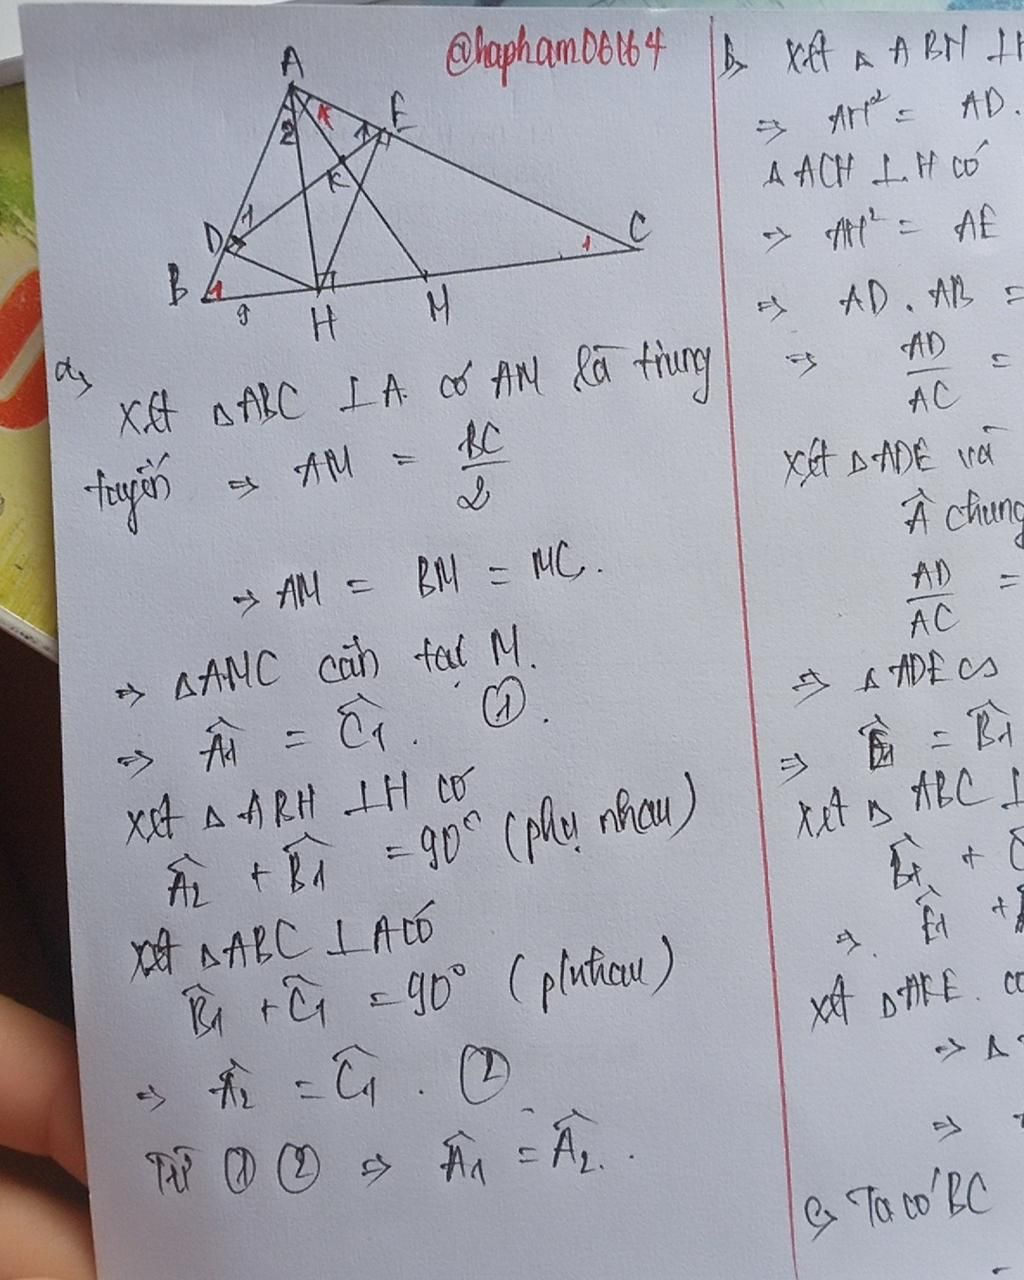 @hapham06164
A
2
1
E
1
K
D
1
B
1
9
H
M
1
C
a,
Xét △ABC ⊥ A. có AM là trung
tuyến => AM = BC/2
=> AM = BM = MC.
=> △AMC cân tại M.
=> Â1 = Ĉ1. ①.
Xét △ ABH ⊥H có
Â2 + B̂1 = 90° (phụ nhau)
Xét △ABC ⊥A có
B̂1 + Ĉ1 = 90° (p/nhau)
=> Â2 = Ĉ1. ②
Từ ① ② => Â1 = Â2.
b, Xét △ ABH ⊥H
=> AH² = AD.
△ ACH ⊥.H có
=> AH² = AE
=> AD . AB =
=> AD/AC =
Xét △ADE và
Â chung
AD/AC =
=> △ADE ∽
=> Ê1 = B̂1
Xét △ ABC ⊥
B̂1 +
=> Ê1 +
Xét △AKE. có
=> △
=>
c, Ta có BC